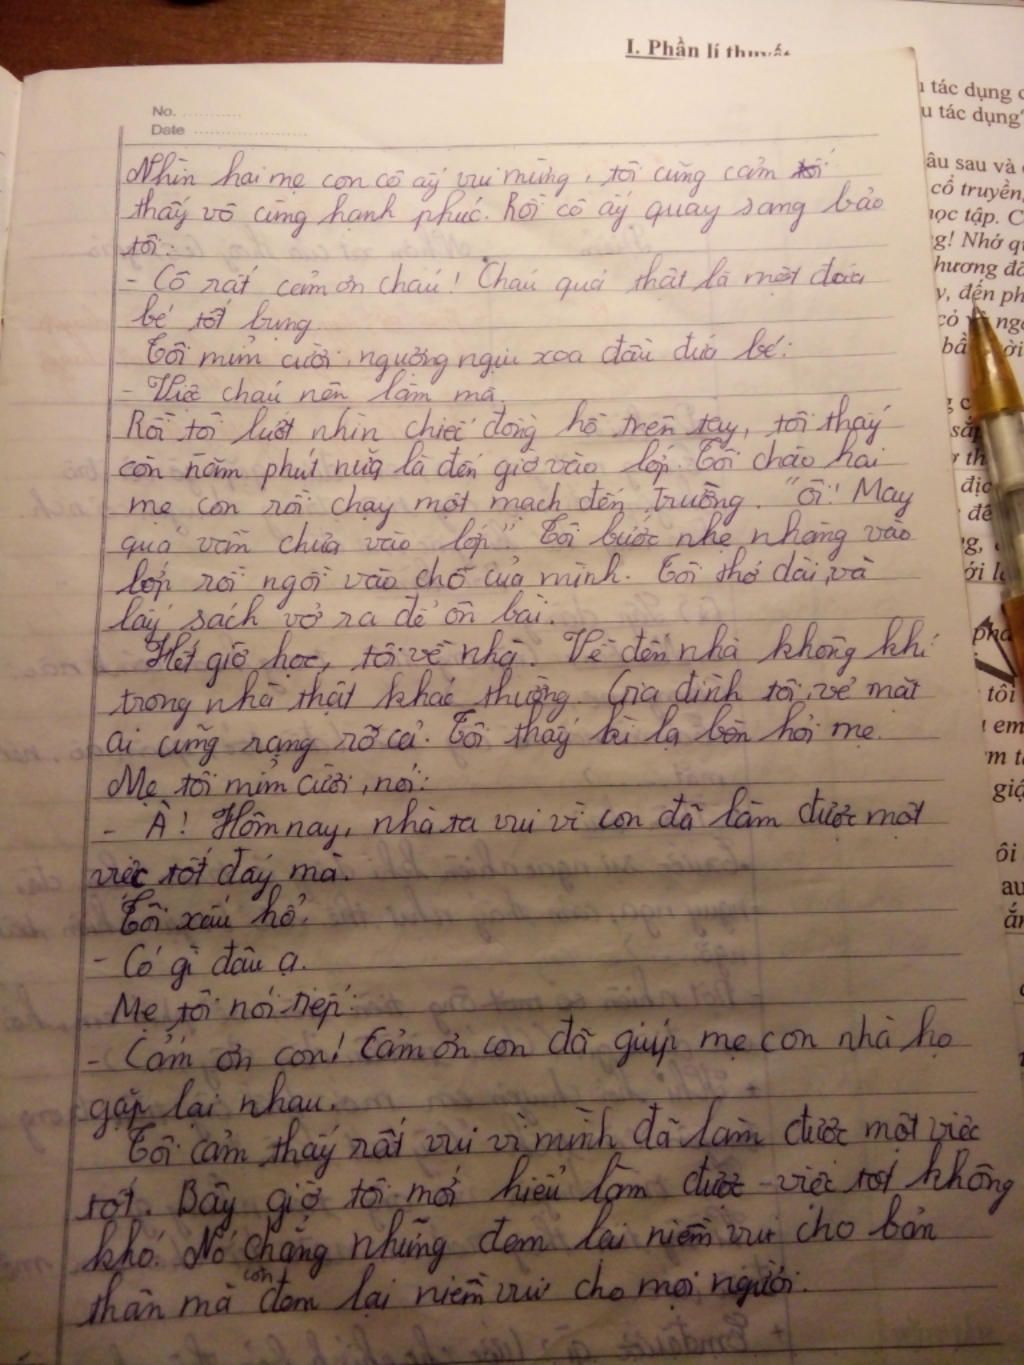 I. Phần lí thuyết
No.
Date
Nhìn hai mẹ con cô ấy vui mừng, tôi cũng cảm
thấy vô cùng hạnh phúc. Rồi cô ấy quay sang bảo
tôi:
- Cô rất cảm ơn cháu! Cháu quả thật là một đứa
bé tốt bụng
Tôi mỉm cười, ngượng ngịu xoa đầu đứa bé:
- Việc cháu nên làm mà.
Rồi tôi lướt nhìn chiếc đồng hồ trên tay, tôi thấy
còn năm phút nữa là đến giờ vào lớp. Tôi chào hai
mẹ con rồi chạy một mạch đến trường. "Ôi! May
quá vẫn chưa vào lớp". Tôi bước nhẹ nhàng vào
lớp rồi ngồi vào chỗ của mình. Tôi thở dài và
lấy sách vở ra để ôn bài.
Hết giờ học, tôi về nhà. Về đến nhà không khí
trong nhà thật khác thường. Gia đình tôi, vẻ mặt
ai cũng rạng rỡ cả. Tôi thấy kì lạ bèn hỏi mẹ.
Mẹ tôi mỉm cười, nói:
- À! Hôm nay, nhà ta vui vì con đã làm được một
việc tốt đấy mà.
Tôi xấu hổ.
- Có gì đâu ạ.
Mẹ tôi nói tiếp:
- Cảm ơn con! Cảm ơn con đã giúp mẹ con nhà họ
gặp lại nhau.
Tôi cảm thấy rất vui vì mình đã làm được một việc
tốt. Bây giờ tôi mới hiểu làm được việc tốt không
khó. Nó chẳng những đem lại niềm vui cho bản
thân mà còn đem lại niềm vui cho mọi người.
tác dụng
tác dụng
âu sau và
cổ truyền,
học tập. C
g! Nhớ
hương
đến
tôi
em